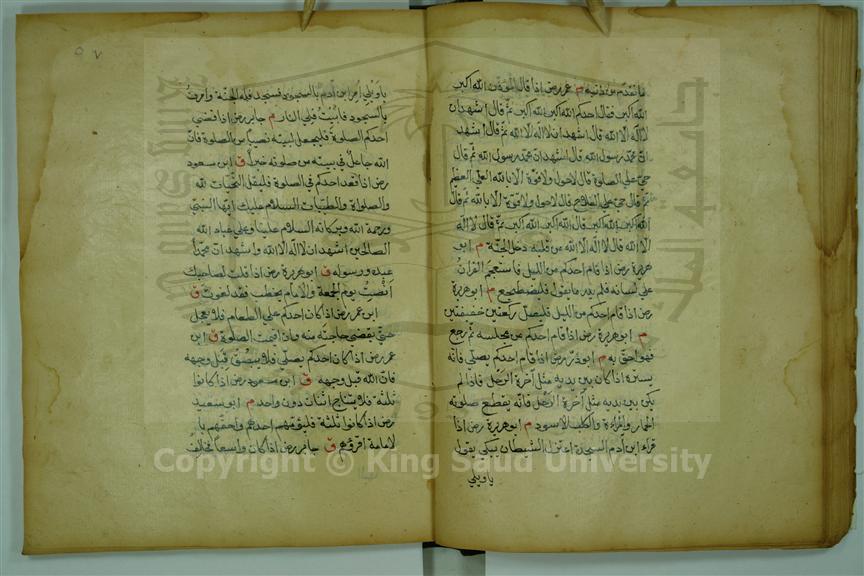 ما تقدم من ذنبه م عمر رض اذا قال المؤذن الله اكبر
الله اكبر فقال احدكم الله اكبر الله اكبر ثم قال اشهد ان
لا اله الا الله قال اشهد ان لا اله الا الله ثم قال اشهد
ان محمد رسول الله قال اشهد ان محمد رسول الله ثم قال
حي على الصلوة قال لا حول ولا قوة الا بالله العلي العظيم
ثم قال حي على الفلاح قال لا حول ولا قوة الا بالله ثم قال
الله اكبر الله اكبر قال الله اكبر الله اكبر ثم قال لا اله
الا الله قال لا اله الا الله من قلبه دخل الجنة م ابو
هريرة رض اذا قام احدكم من الليل فاستعجم القرآن
على لسانه فلم يدر ما يقول فليضطجع م ابو هريرة
رض اذا قام احدكم من الليل فليصل ركعتين خفيفتين
م ابو هريرة رض اذا قام احدكم من مجلسه ثم رجع
فهو احق به م ابو ذر رض اذا قام احدكم يصلي فانه
يستره اذا كان بين يديه مثل آخرة الرحل فاذا لم
يكن بين يديه مثل آخرة الرحل فانه يقطع صلوته
الحمار والمراة والكلب الاسود م ابو هريرة رض اذا
قراء ابن آدم السجدة اعتزل الشيطان يبكي يقول
يا ويلي
٥٧
يا ويلي امر ابن آدم بالسجود فسجد فله الجنة وامرت
بالسجود فابيت فلي النار م جابر رض اذا قضى
احدكم الصلوة فليجعل لبيته نصيبا من الصلوة فان
الله جاعل في بيته من صلوته خيرا ق ابن مسعود
رض اذا قعد احدكم في الصلوة فليقل التحيات لله
والصلواة والطيبات السلام عليك ايها النبي
ورحمة الله وبركاته السلام علينا وعلى عباد الله
الصالحين اشهد ان لا اله الا الله واشهد ان محمدا
عبده ورسوله ق ابو هريرة رض اذا قلت لصاحبك
انصت يوم الجمعة والامام يخطب فقد لغوت ق
ابن عمر رض اذا كان احدكم على الطعام فلا يعجل
حتى يقضي حاجته منه وان اقيمت الصلوة ق ابن
عمر رض اذا كان احدكم يصلي فلا يبصق قبل وجهه
فان الله قبل وجهه ق ابن مسعود رض اذا كانوا
ثلثة فلا يتناجى اثنان دون واحد م ابو سعيد
رض اذا كانوا ثلثة فليؤمهم احدهم واحقهم با
لامامة اقرؤهم ق جابر رض اذا كان واسعا فخالف
جامعة الملك سعود
Copyright © King Saud University